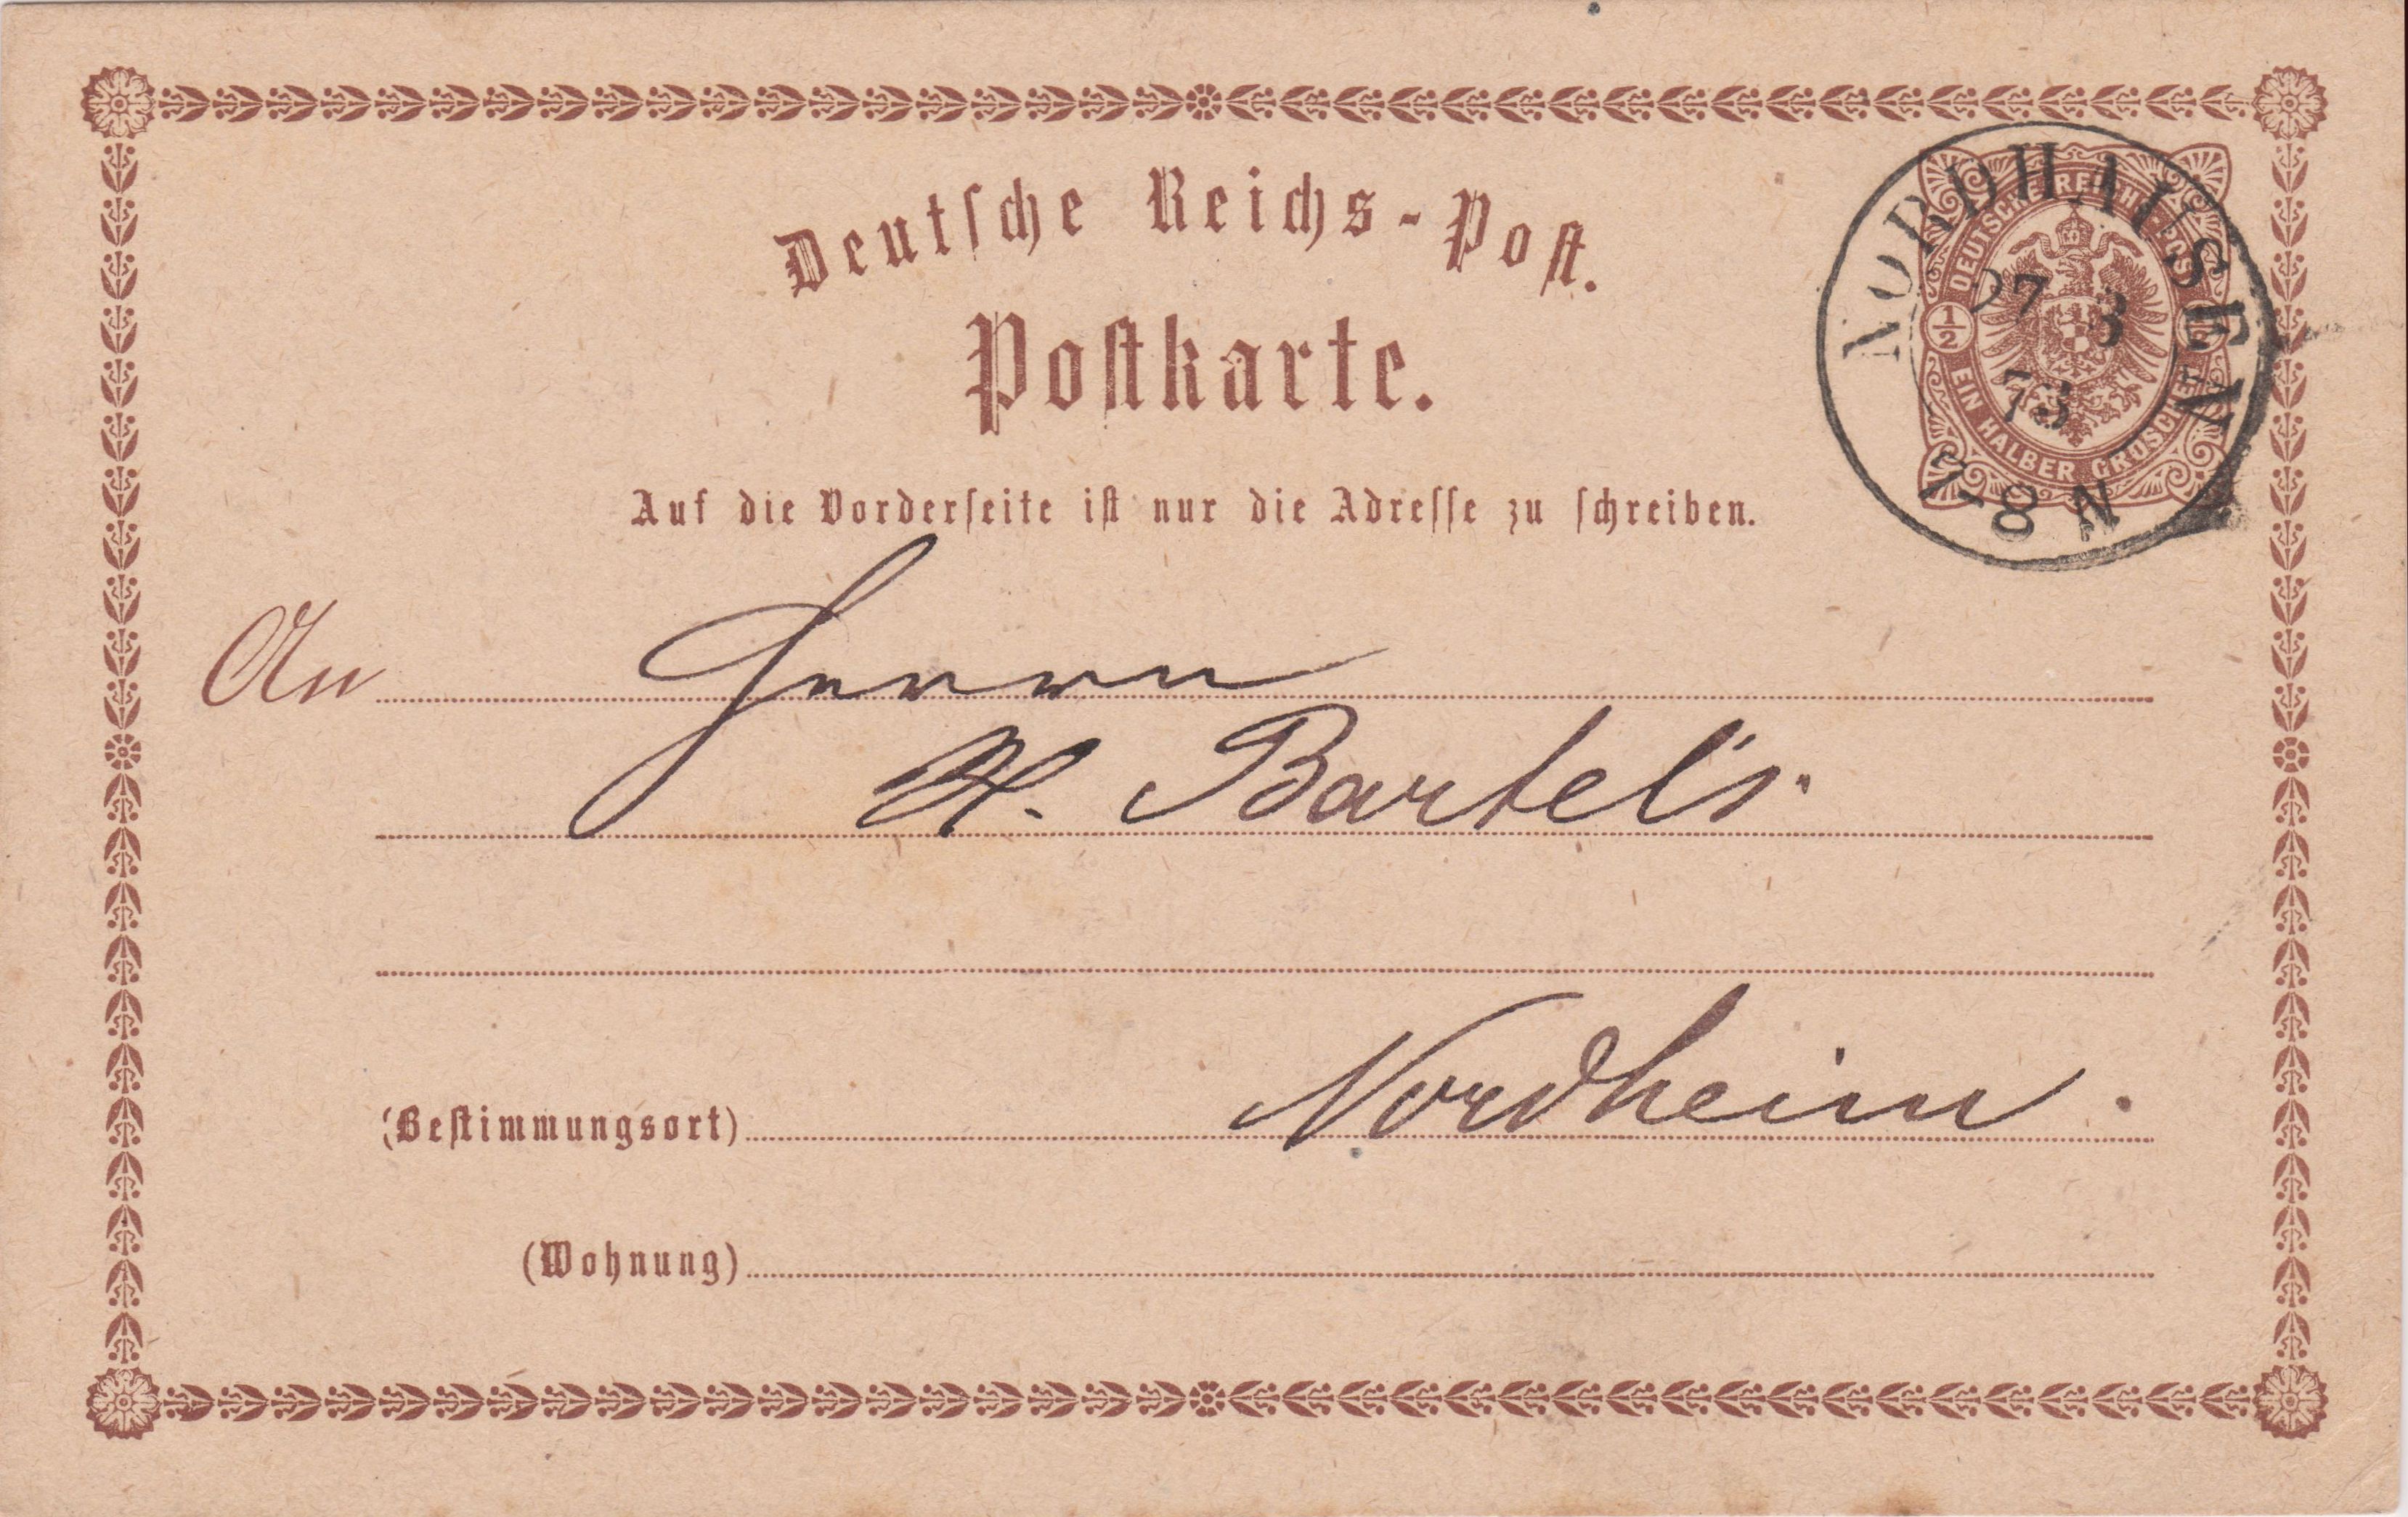 Deutsche Reichs-Post.
Postkarte.
NORDHAUSEN
27 3
73
7-8 N
DEUTSCHE REICHS-POST
1/2
EIN HALBER GROSCHEN
Auf die Vorderseite ist nur die Adresse zu schreiben.
An Herrn
H. Bartels.
(Bestimmungsort) Nordheim.
(Wohnung)